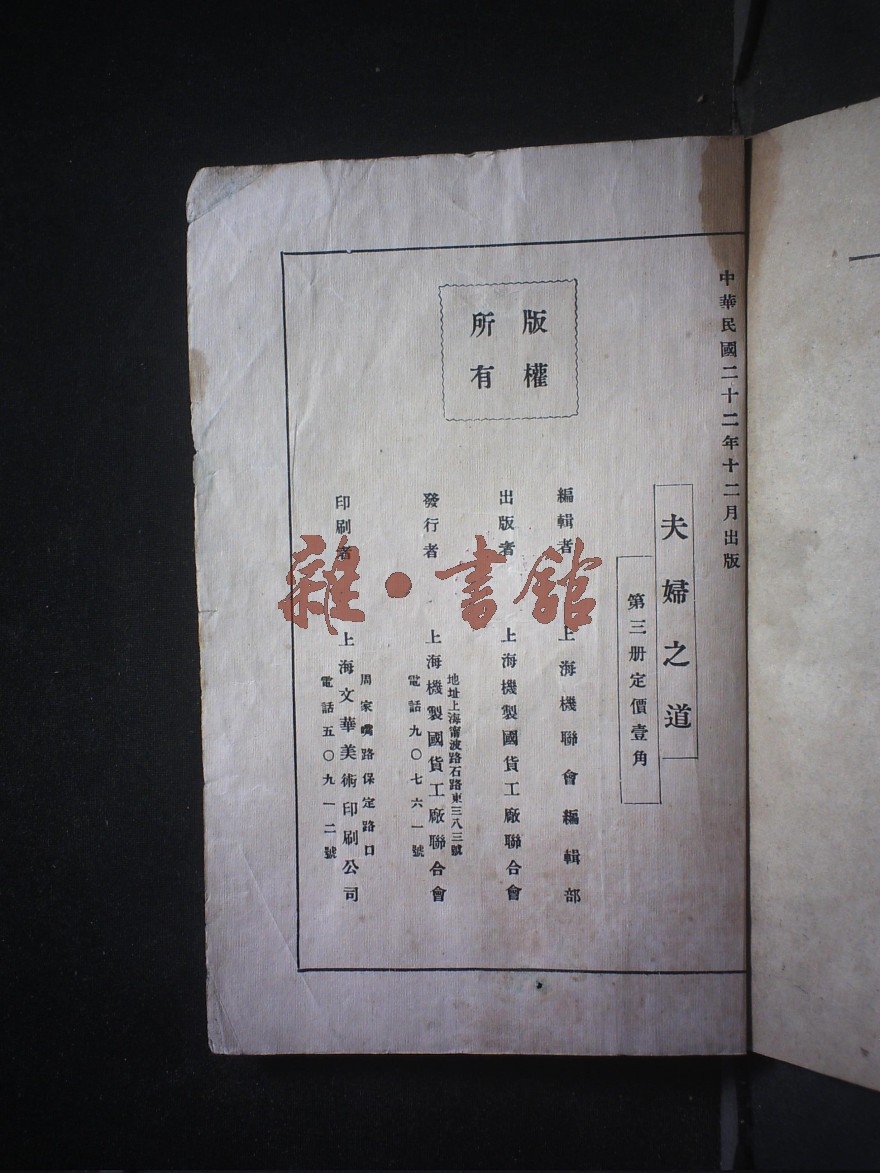 中華民國二十二年十二月出版
夫婦之道
第三册定價壹角
版權
所有
編輯者 上海機聯會編輯部
出版者 上海機製國貨工廠聯合會
發行者 上海機製國貨工廠聯合會
地址上海甯波路石路東三八三號
電話九〇七六一號
印刷者 上海文華美術印刷公司
周家嘴路保定路口
電話五〇九一二號
雜·書館